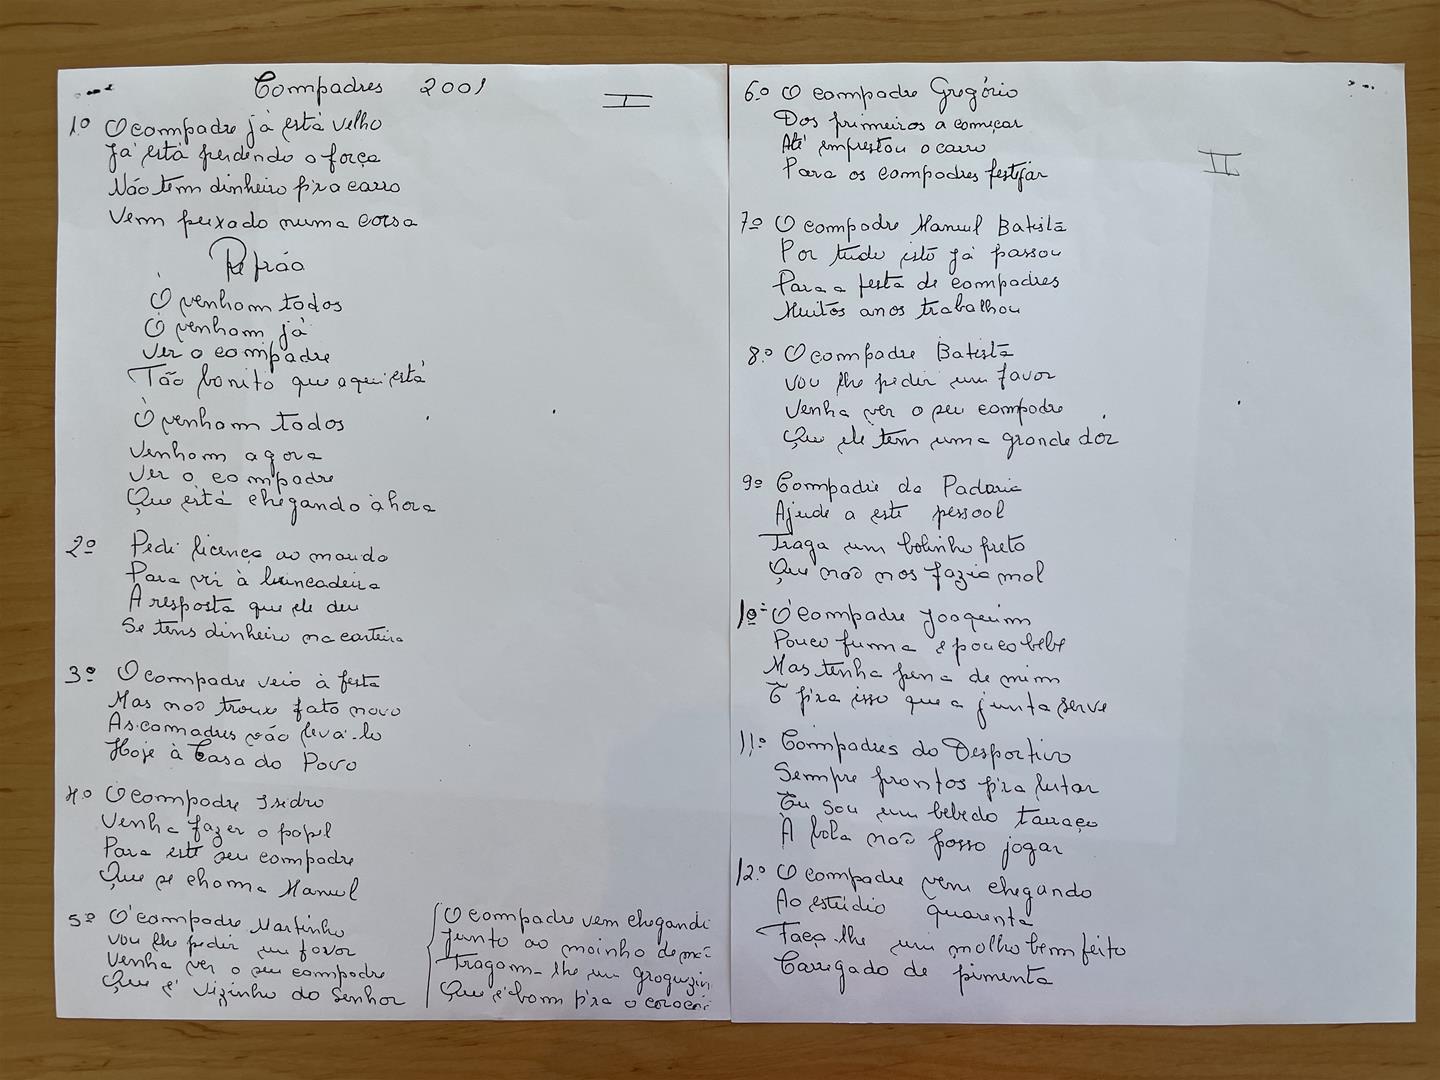 Compadres 2001
I
1.º O compadre já está velho
Já está perdendo a força
Não tem dinheiro p'ra carro
Vem puxado numa corsa
Refrão
Ó venham todos
Ó venham já
Ver o compadre
Tão bonito que aqui está
Ó venham todos
Venham agora
Ver o compadre
Que está chegando à hora
2º Pedi licença ao marido
Para vir à brincadeira
A resposta que ele deu
Se tens dinheiro na carteira
3º O compadre veio à festa
Mas não trouxe fato novo
As comadres vão levá-lo
Hoje à Casa do Povo
4.º O compadre Isidro
Venha fazer o papel
Para este seu compadre
Que se chama Manuel
5º Ó compadre Martinho
Vou lhe pedir um favor
Venha ver o seu compadre
Que é vizinho do Senhor
O compadre vem chegando
Junto ao moinho de
Tragam-lhe um
Que é bom p'ra o
6.º O compadre Gregório
Dos primeiros a começar
Até emprestou o carro
Para os compadres festejar
II
7º O compadre Manuel Batista
Por tudo isto já passou
Para a festa de compadres
Muitos anos trabalhou
8.º O compadre Batista
Vou lhe pedir um favor
Venha ver o seu compadre
Que ele tem uma grande dor
9º Compadre da Padaria
Ajude a este pessoal
Traga um bolinho preto
Que não nos fazia mal
10º Ó compadre Joaquim
Pouco fuma e pouco bebe
Mas tenha pena de mim
E p'ra isso que a junta serve
11.º Compadres do Desportivo
Sempre prontos p'ra lutar
Eu sou um bebedo tarraço
À bola não posso jogar
12.º O compadre vem chegando
Ao estúdio quarenta
Faça-lhe um molho bem feito
Carregado de pimenta